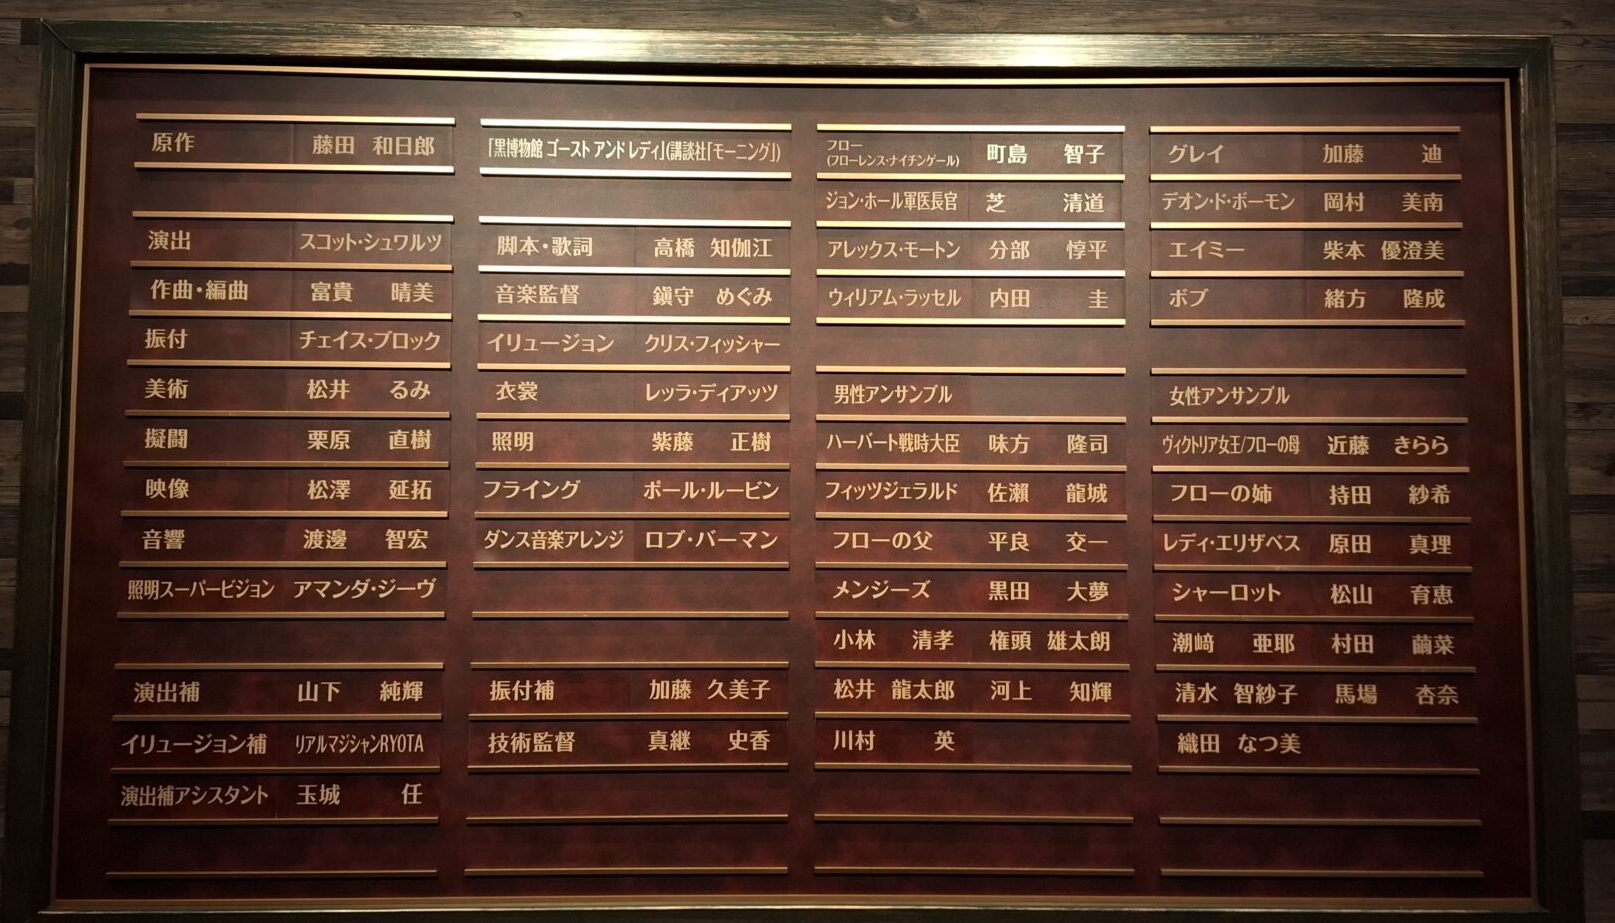 原作 藤田 和日郎
演出 スコット・シュワルツ
作曲・編曲 富貴 晴美
振付 チェイス・ブロック
美術 松井 るみ
擬闘 栗原 直樹
映像 松澤 延拓
音響 渡邊 智宏
照明スーパービジョン アマンダ・ジーヴ
演出補 山下 純輝
イリュージョン補 リアルマジシャンRYOTA
演出補アシスタント 玉城 任
「黒博物館 ゴースト アンド レディ」(講談社「モーニング」)
脚本・歌詞 高橋 知伽江
音楽監督 鎭守 めぐみ
イリュージョン クリス・フィッシャー
衣裳 レッラ・ディアッツ
照明 紫藤 正樹
フライング ポール・ルービン
ダンス音楽アレンジ ロブ・バーマン
振付補 加藤 久美子
技術監督 真継 史香
フロー
(フローレンス・ナイチンゲール) 町島 智子
ジョン・ホール軍医長官 芝 清道
アレックス・モートン 分部 惇平
ウィリアム・ラッセル 内田 圭
男性アンサンブル
ハーバート戦時大臣 味方 隆司
フィッツジェラルド 佐瀬 龍城
フローの父 平良 交一
メンジーズ 黒田 大夢
小林 清孝 権頭 雄太朗
松井 龍太郎 河上 知輝
川村 英
グレイ 加藤 迪
デオン・ド・ボーモン 岡村 美南
エイミー 柴本 優澄美
ボブ 緒方 隆成
女性アンサンブル
ヴィクトリア女王/フローの母 近藤 きらら
フローの姉 持田 紗希
レディ・エリザベス 原田 真理
シャーロット 松山 育恵
潮﨑 亜耶 村田 繭菜
清水 智紗子 馬場 杏奈
織田 なつ美